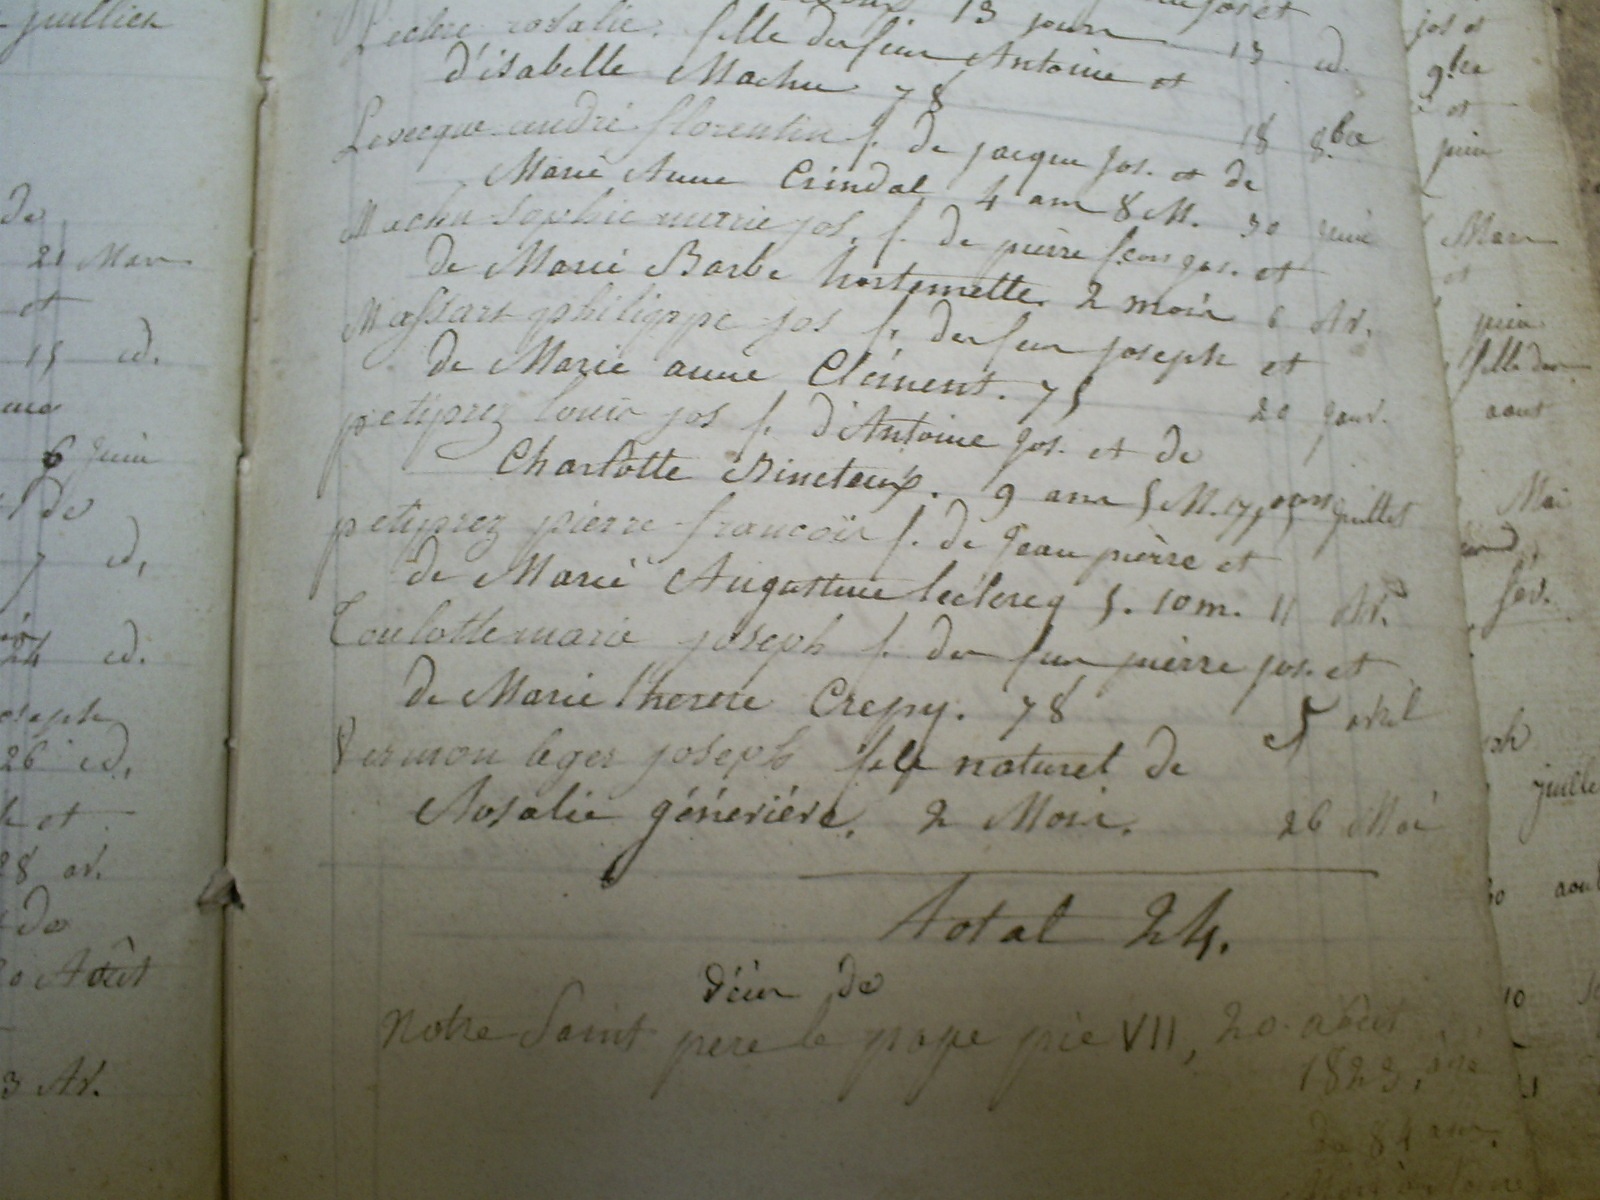 juillien
de
21 Mars
et
15 id.
6 Juin
de
7 id,
24 id.
26 id,
et
28 av.
de
20 Août
3 Av.
13 jours
Leclere rosalie. fille du feu Antoine et 13 id.
d'isabelle Machu 78
Levecque andré florentin f. de jacque jos. et de 18 8.bre
Marie Anne Crindal 4 ans 8 M. 30 juin
Machu Sophie marie jos. f. de pierre et
de Marie Barbe hortemette. 2 mois 6 Av.
Massart philippe jos f. du feu joseph et
de Marie anne Clément. 75 20 janv.
petiprez louis jos f. d'Antoine jos. et de
Charlotte Bincteux. 9 ans 5 M. juillet
petiprez pierre francois f. de Jean pierre et
de Marie Augustine leclercq 5. 10 m. 11 Av.
Toulotte marie joseph f. du feu pierre jos. et
de Marie therese Crepy. 78 5 avril
Vermon leger joseph fils naturel de
Rosalie génerière. 2 Mois. 26 Mai
total 24.
décès de
Notre Saint pere le pape pie VII, 20 août
1823, âgé
de 84 ans.
jos et
9.bre
et
juin
Mars
et
juin
fille du
aout
Mai
fév.
juille
30 aout
10